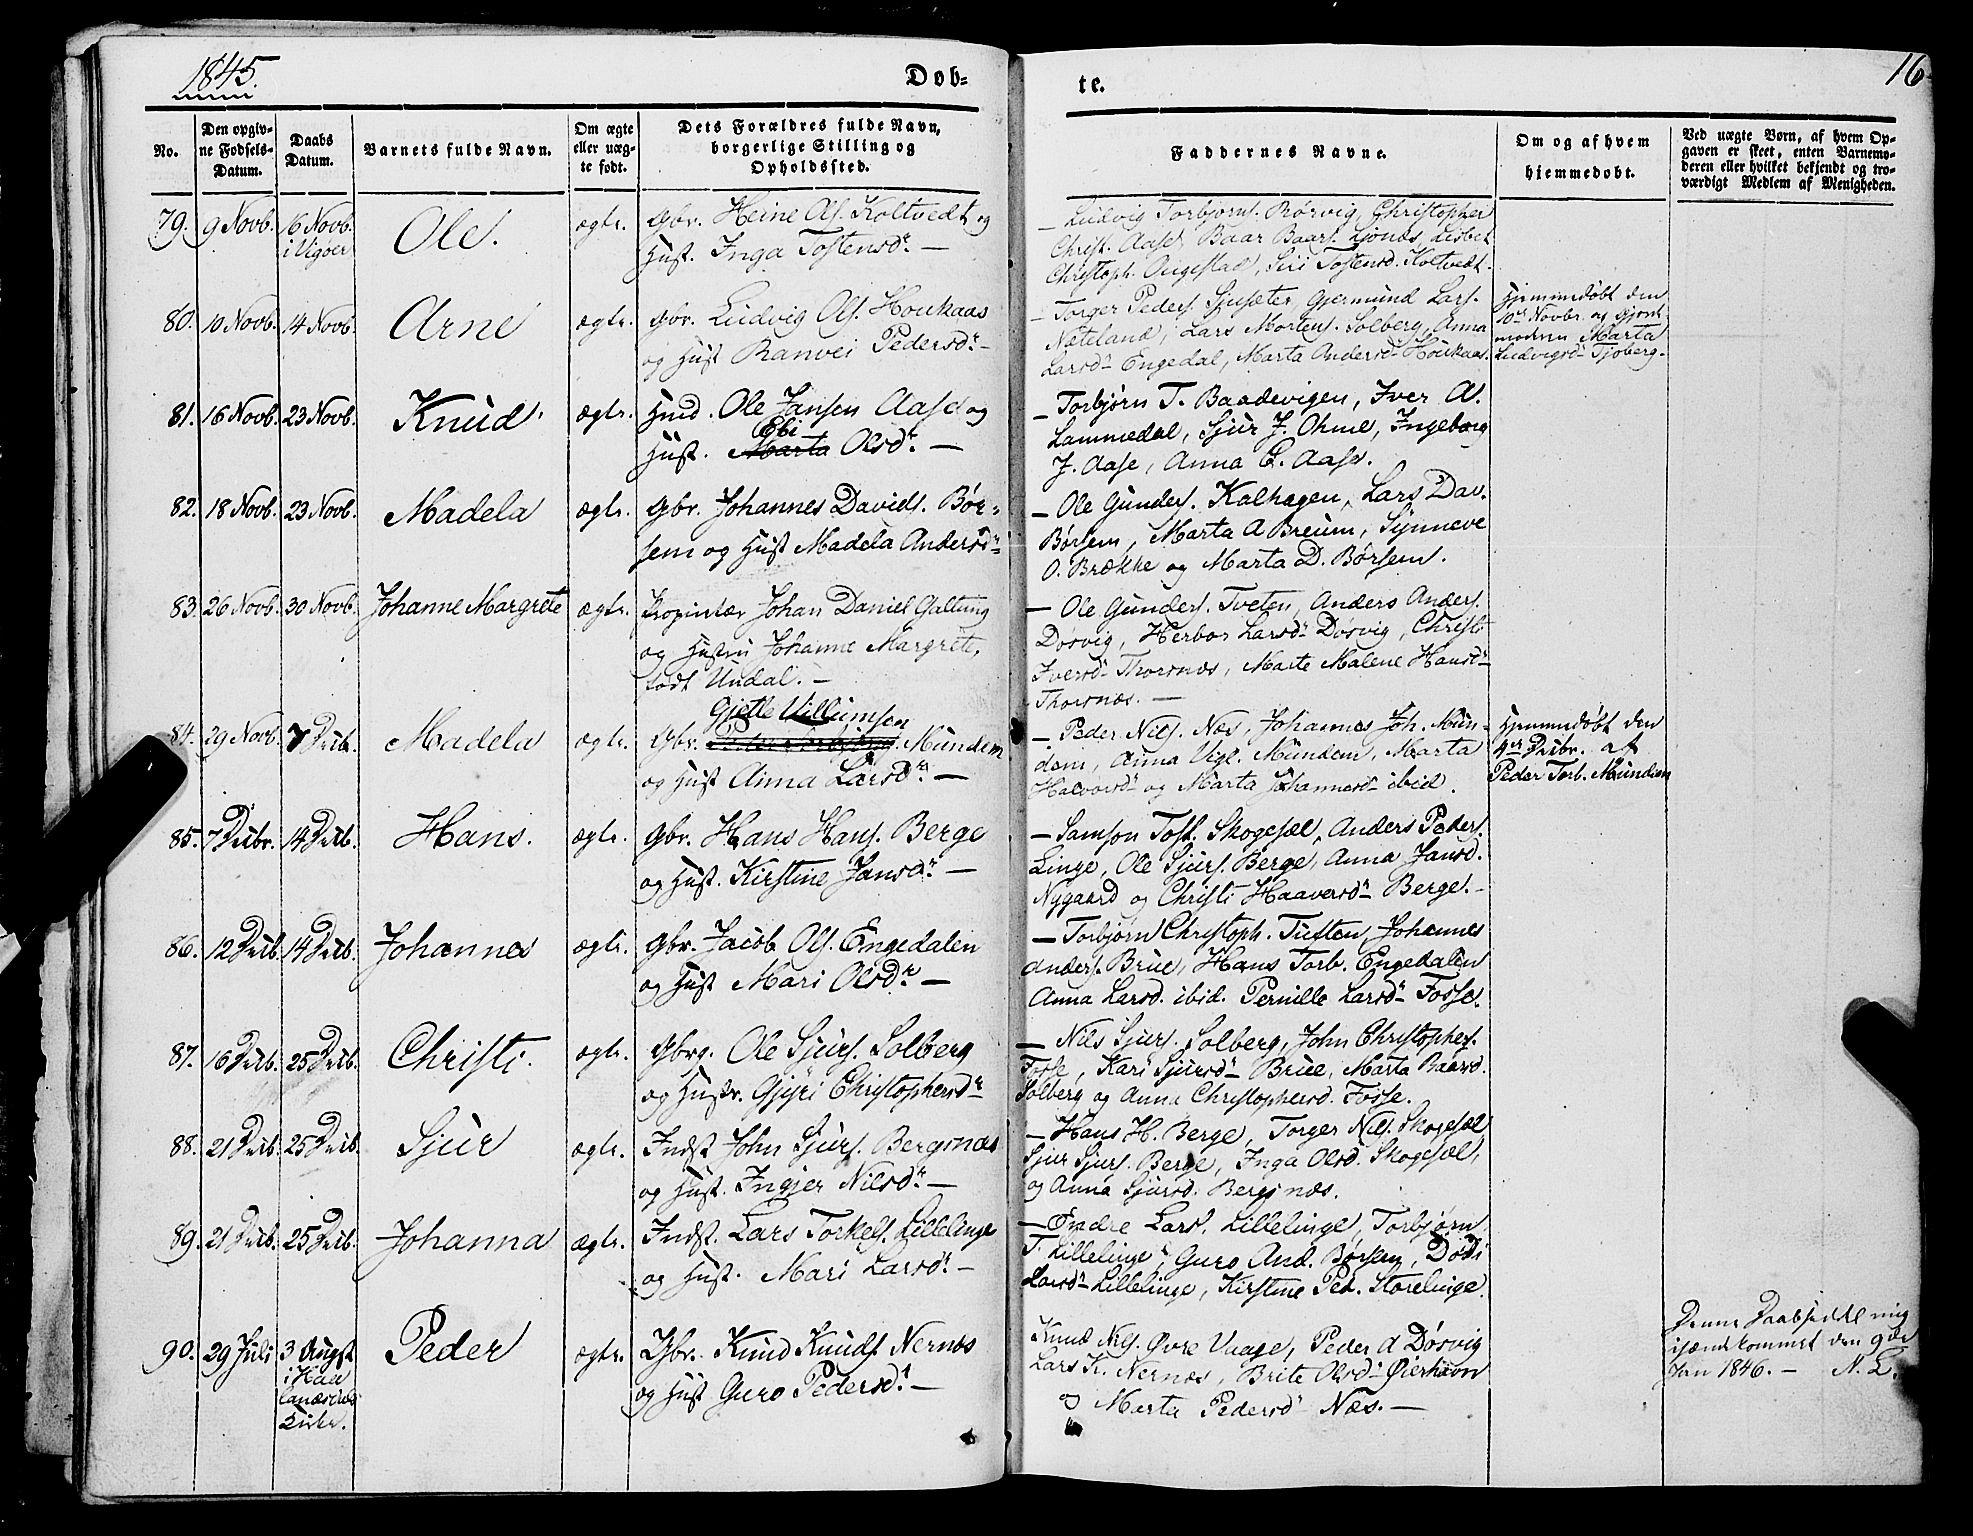 1845.
Døb-
te.
16
No.
Den opgiv-
ne Fødsels-
Datum.
Daabs
Datum.
Barnets fulde Navn.
Om ægte
eller uæg-
te født.
Dets Forældres fulde Navn,
borgerlige Stilling og
Opholdssted.
Faddernes Navne.
Om og af hvem
hjemmedøbt.
Ved uægte Børn, af hvem Op-
gaven er skeet, enten Barnemo-
deren eller hvilket bekjendt og tro-
værdigt Medlem af Menigheden.
79. 9 Novb. 16 Novb. i Vigøer Ole. ægte. Gbr. Heine Ols. Koltvedt og
Hust. Inga Tostensdr. —
— Ludvig Torbjørns. Rørvig, Christopher
Christ. Aase, Baar Baars. Ljonæs, Lisbet
Christoph. Augestad, Siri Tostensd. Koltvedt.
80. 10 Novb. 14 Novb. Arne ægte. Gbr. Ludvig Ols. Houkaas
og Hust Ranvei Pedersdr. —
— Torger Peders. Sjusæter, Gjermund Lars.
Neteland, Lars Mortens. Solberg, Anna
Larsdr. Engedal, Marta Andersdr. Houkaas.
Hjemmedøbt den
10de Novbr. og
moderen Marta
Ludvigsdr. Tjoberg.
81. 16 Novb. 23 Novb. Knud. ægte. Hmd. Ole Jansen Aase og
Ebi
Hust. Marta Olsdr. —
— Torbjørn T. Baadevigen, Iver A.
Lammedal, Sjur J. Ohme, Ingeborg
J. Aase, Anna C. Aase.
82. 18 Novb. 23 Novb. Madela ægte. Gbr. Johannes Davids. Bør-
sem og Hust Madela Andersdr.
— Ole Gunders. Kalhagen, Lars Dav.
Børsem, Marta A Breium, Synneve
O. Brække og Marta D. Børsem.
83. 26 Novb. 30 Novb. Johanne Margrete ægte. Propintær Johan Daniel Galtung
og Hustru Johanne Margrete,
født Undal. —
— Ole Gunders. Tveten, Anders Anders.
Døsvig, Herbor Larsdr. Døsvig, Christi
Iversdr. Thorsnæs, Marte Malene Hansdr.
Thorsnæs. —
Gjetle Villumsen
84. 29 Novb. 7 Decbr. Madela ægte. Gbr. Mundem
og Hust Anna Larsdr. —
— Peder Nils. Næs, Johannes Joh. Mun-
dem, Anna Vigl. Mundem, Marta
Halvorsdr. og Marta Johannesdr. ibid.
Hjemmedøbt den
4de Decbr. af
Peder Torb. Mundem
85. 7 Decbr. 14 Decb. Hans. ægte. Gbr. Hans Hans. Berge
og Hust. Kirstine Jansdr. —
— Samson Tost. Skogesæl, Anders Peders.
Linge, Ole Sjurs. Berge, Anna Jansd.
Nygaard og Christi Haaversdr. Berge. —
86. 12 Decb. 14 Decb. Johannes ægte. Gbr. Jacob Ols. Engedalen
og Hust Mari Olsdr. —
— Torbjørn Christoph. Tuften, Johannes
Anders. Brue, Hans Torb. Engedalen
Anna Larsd. ibid. Pernille Larsdr. Fosse.
87. 16 Decb. 25 Decb. Christi. ægte. Gbrg. Ole Sjurs. Solberg
og Hustr. Gjyri Christophersdr.
— Nils Sjurs. Solberg, John Christophes.
Fosse, Kari Sjursdr. Brue, Marta Baarsd.
Solberg og Anna Christophersd. Fosse.
88. 21 Decb. 25 Decb. Sjur ægte. Indst John Sjurs. Bergsnæs
og Hust. Ingjer Nilsdr. —
— Hans H. Berge, Torger Nils. Skogesæl
Sjur Sjurs. Berge, Inga Olsd. Skogesæl,
og Anna Sjursd. Bergsnæs.
89. 21 Decb. 25 Decb. Johanna ægte. Indst. Lars Torkels. Lillelinge
og Hust. Mari Larsdr. —
— Endre Lars. Lillelinge, Torbjørn
T. Lillelinge, Guro And. Børsem, Dødi
Larsdr. Lillelinge, Kirstine Ped. Storelinge.
90. 29 Juli 3 Augst Peder ægte. Gbr. Knud Knuds. Nernæs
og Hust Guro Pedersd. —
Knud Nils. Øvre Vaage, Peder A Døsvig
Lars K. Nernæs, Brite Olsdr. Østerhavn
og Marta Pedersdr. Næs. —
Denne Daabseddel mig
ihændekommet den 9de
Jan 1846. — N. L.